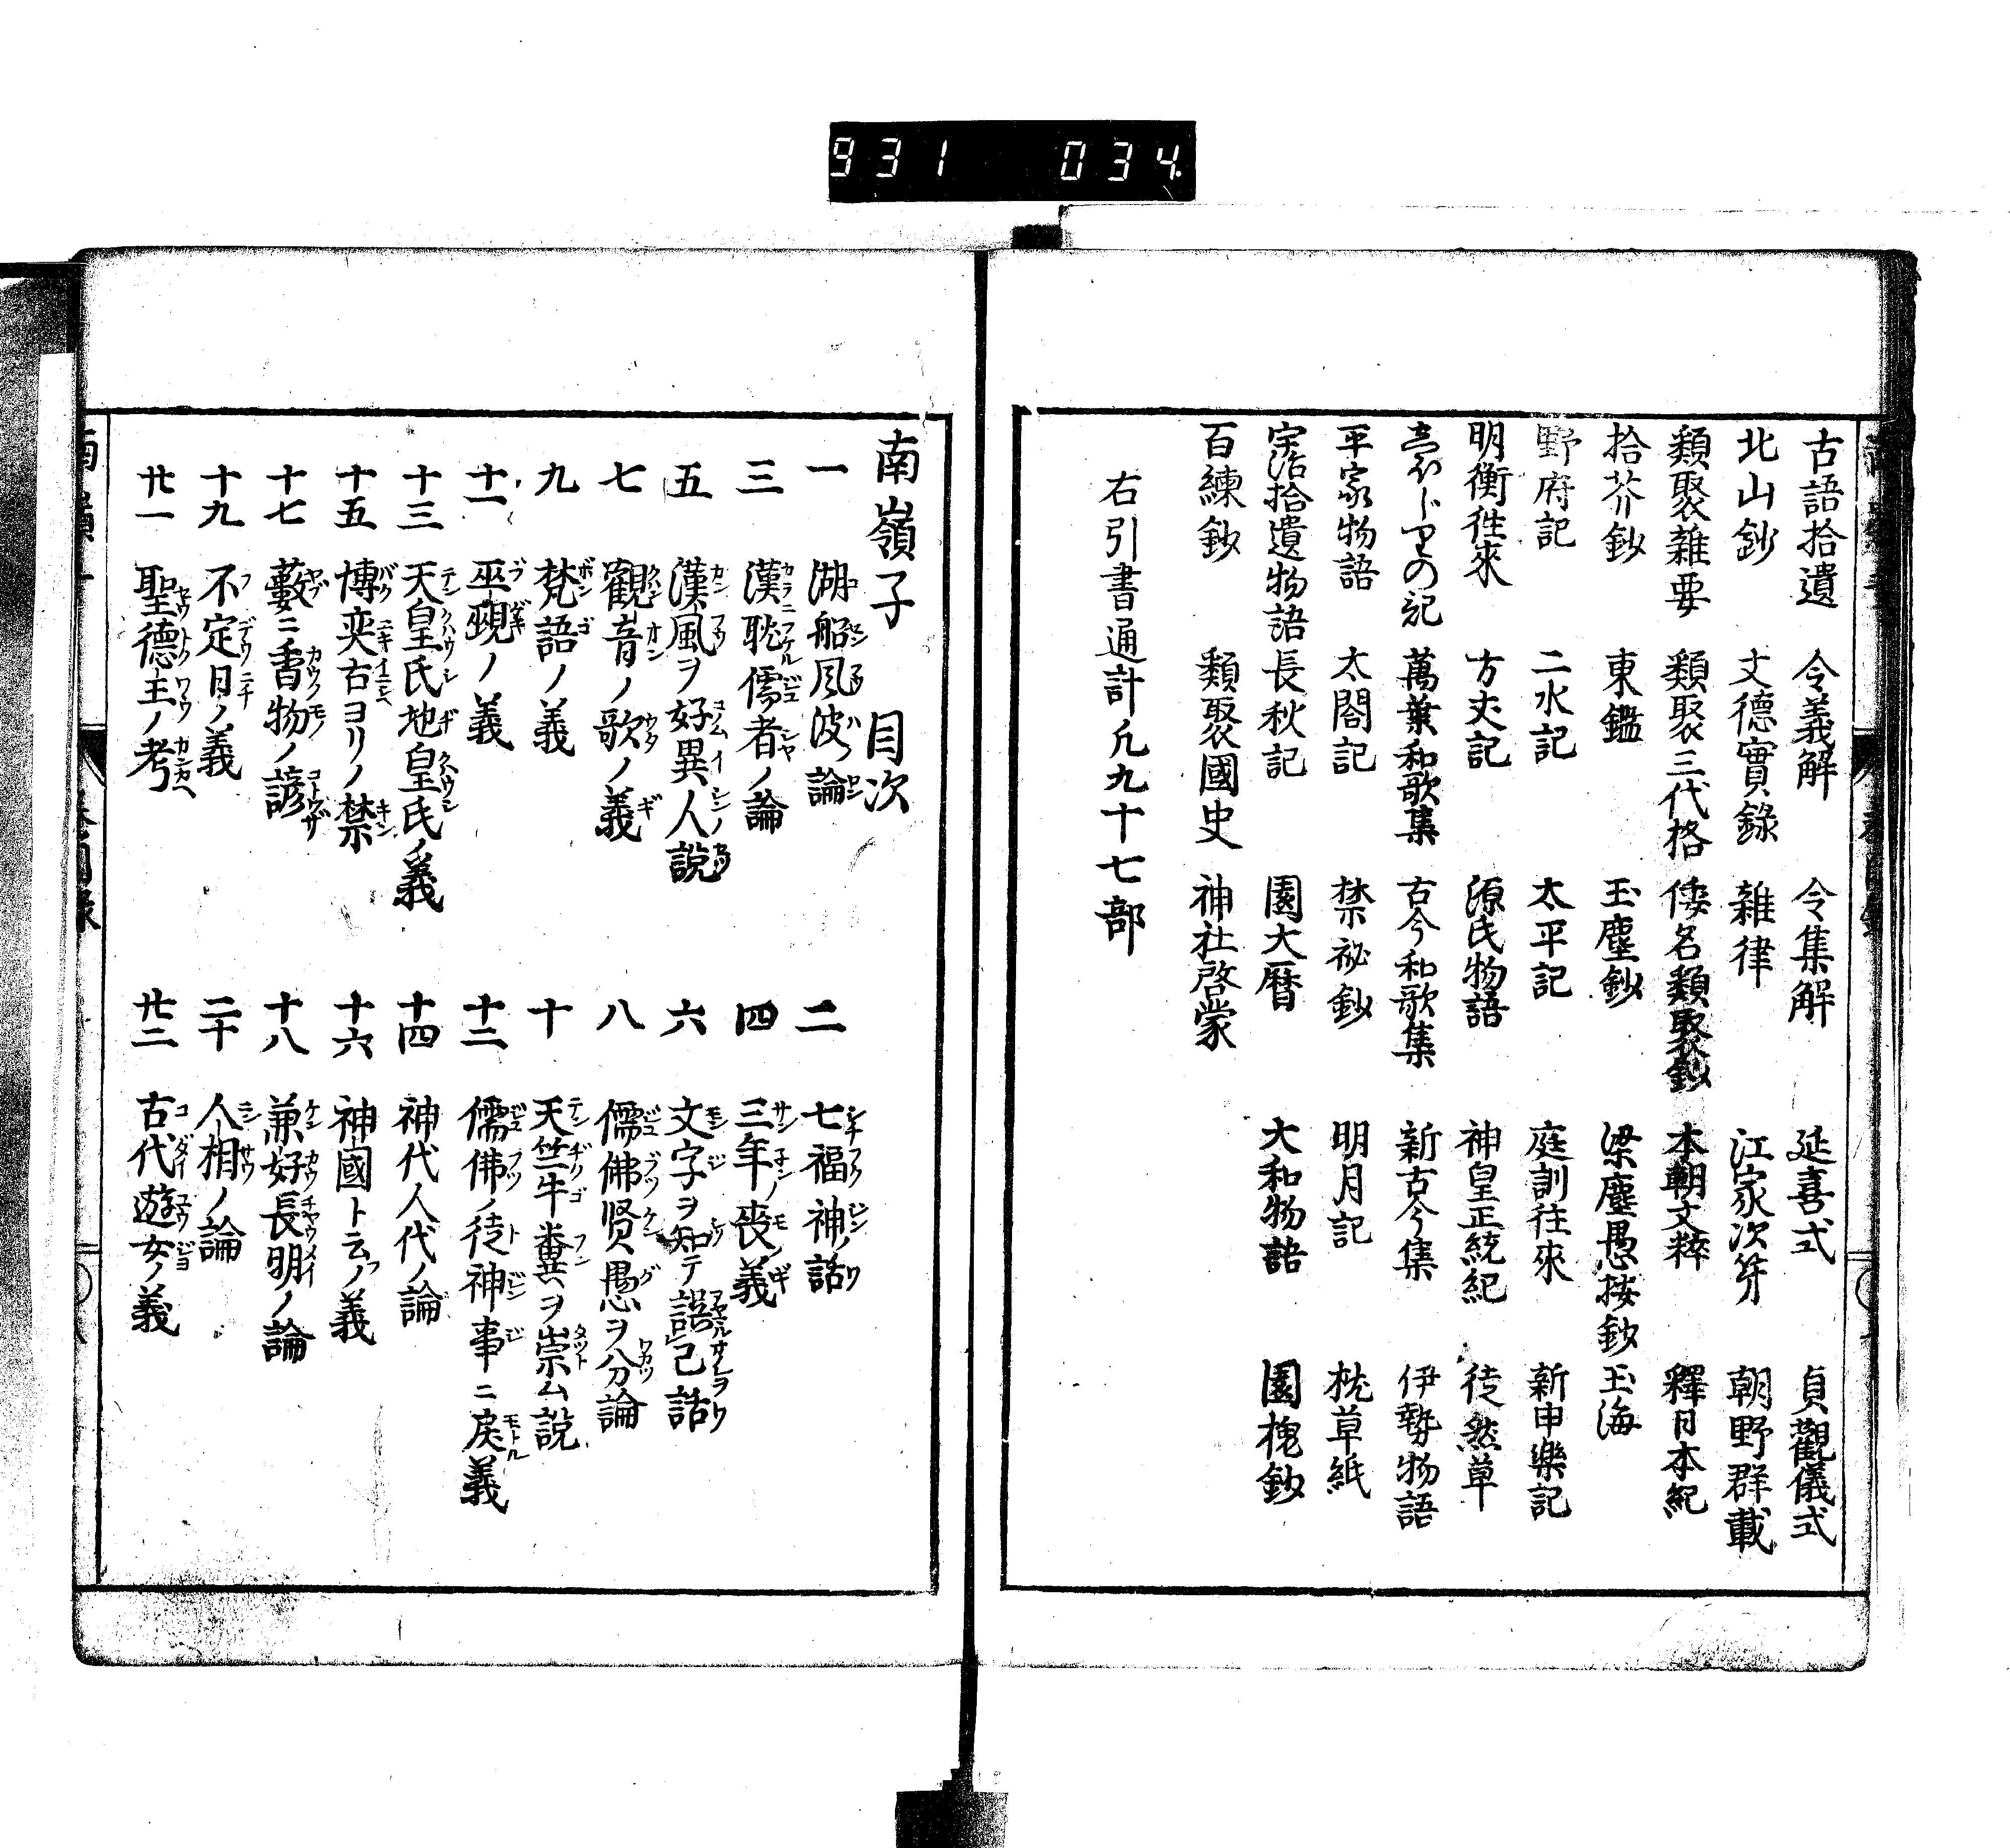 931 034
古語拾遺 令義解 令集解 延喜式 貞觀儀式
北山鈔 文德實錄 雜律 江家次第 朝野群載
類聚雜要 類聚三代格 倭名類聚鈔 本朝文粹 釋日本紀
拾芥鈔 東鑑 玉塵鈔 梁塵愚按鈔 玉海
野府記 二水記 太平記 庭訓往來 新申樂記
明衡徃來 方丈記 源氏物語 神皇正統紀 徒然草
の記 萬葉和歌集 古今和歌集 新古今集 伊勢物語
平家物語 太閤記 禁祕鈔 明月記 枕草紙
宇治拾遺物語 長秋記 園大曆 大和物語 園槐鈔
百練鈔 類聚國史 神社啓蒙
右引書通計凡九十七部
南嶺子 目次
一 湖船風波ノ論 二 七福神ノ話
三 漢耽儒者ノ論 四 三年ノ喪ノ義
五 漢風ヲ好異人ノ說 六 文字ヲ知テ誤己話
七 觀音ノ歌ノ義 八 儒佛賢愚ヲ分論
九 梵語ノ義 十 天竺牛糞ヲ崇ム說
十一 巫覡ノ義 十二 儒佛ノ徒神事ニ戾義
十三 天皇氏地皇氏ノ義 十四 神代人代ノ論
十五 博奕古ヨリノ禁 十六 神國ト云フ義
十七 藪ニ香物ノ諺 十八 兼好長明ノ論
十九 不定日ノ義 二十 人相ノ論
廿一 聖德王ノ考 廿二 古代遊女ノ義